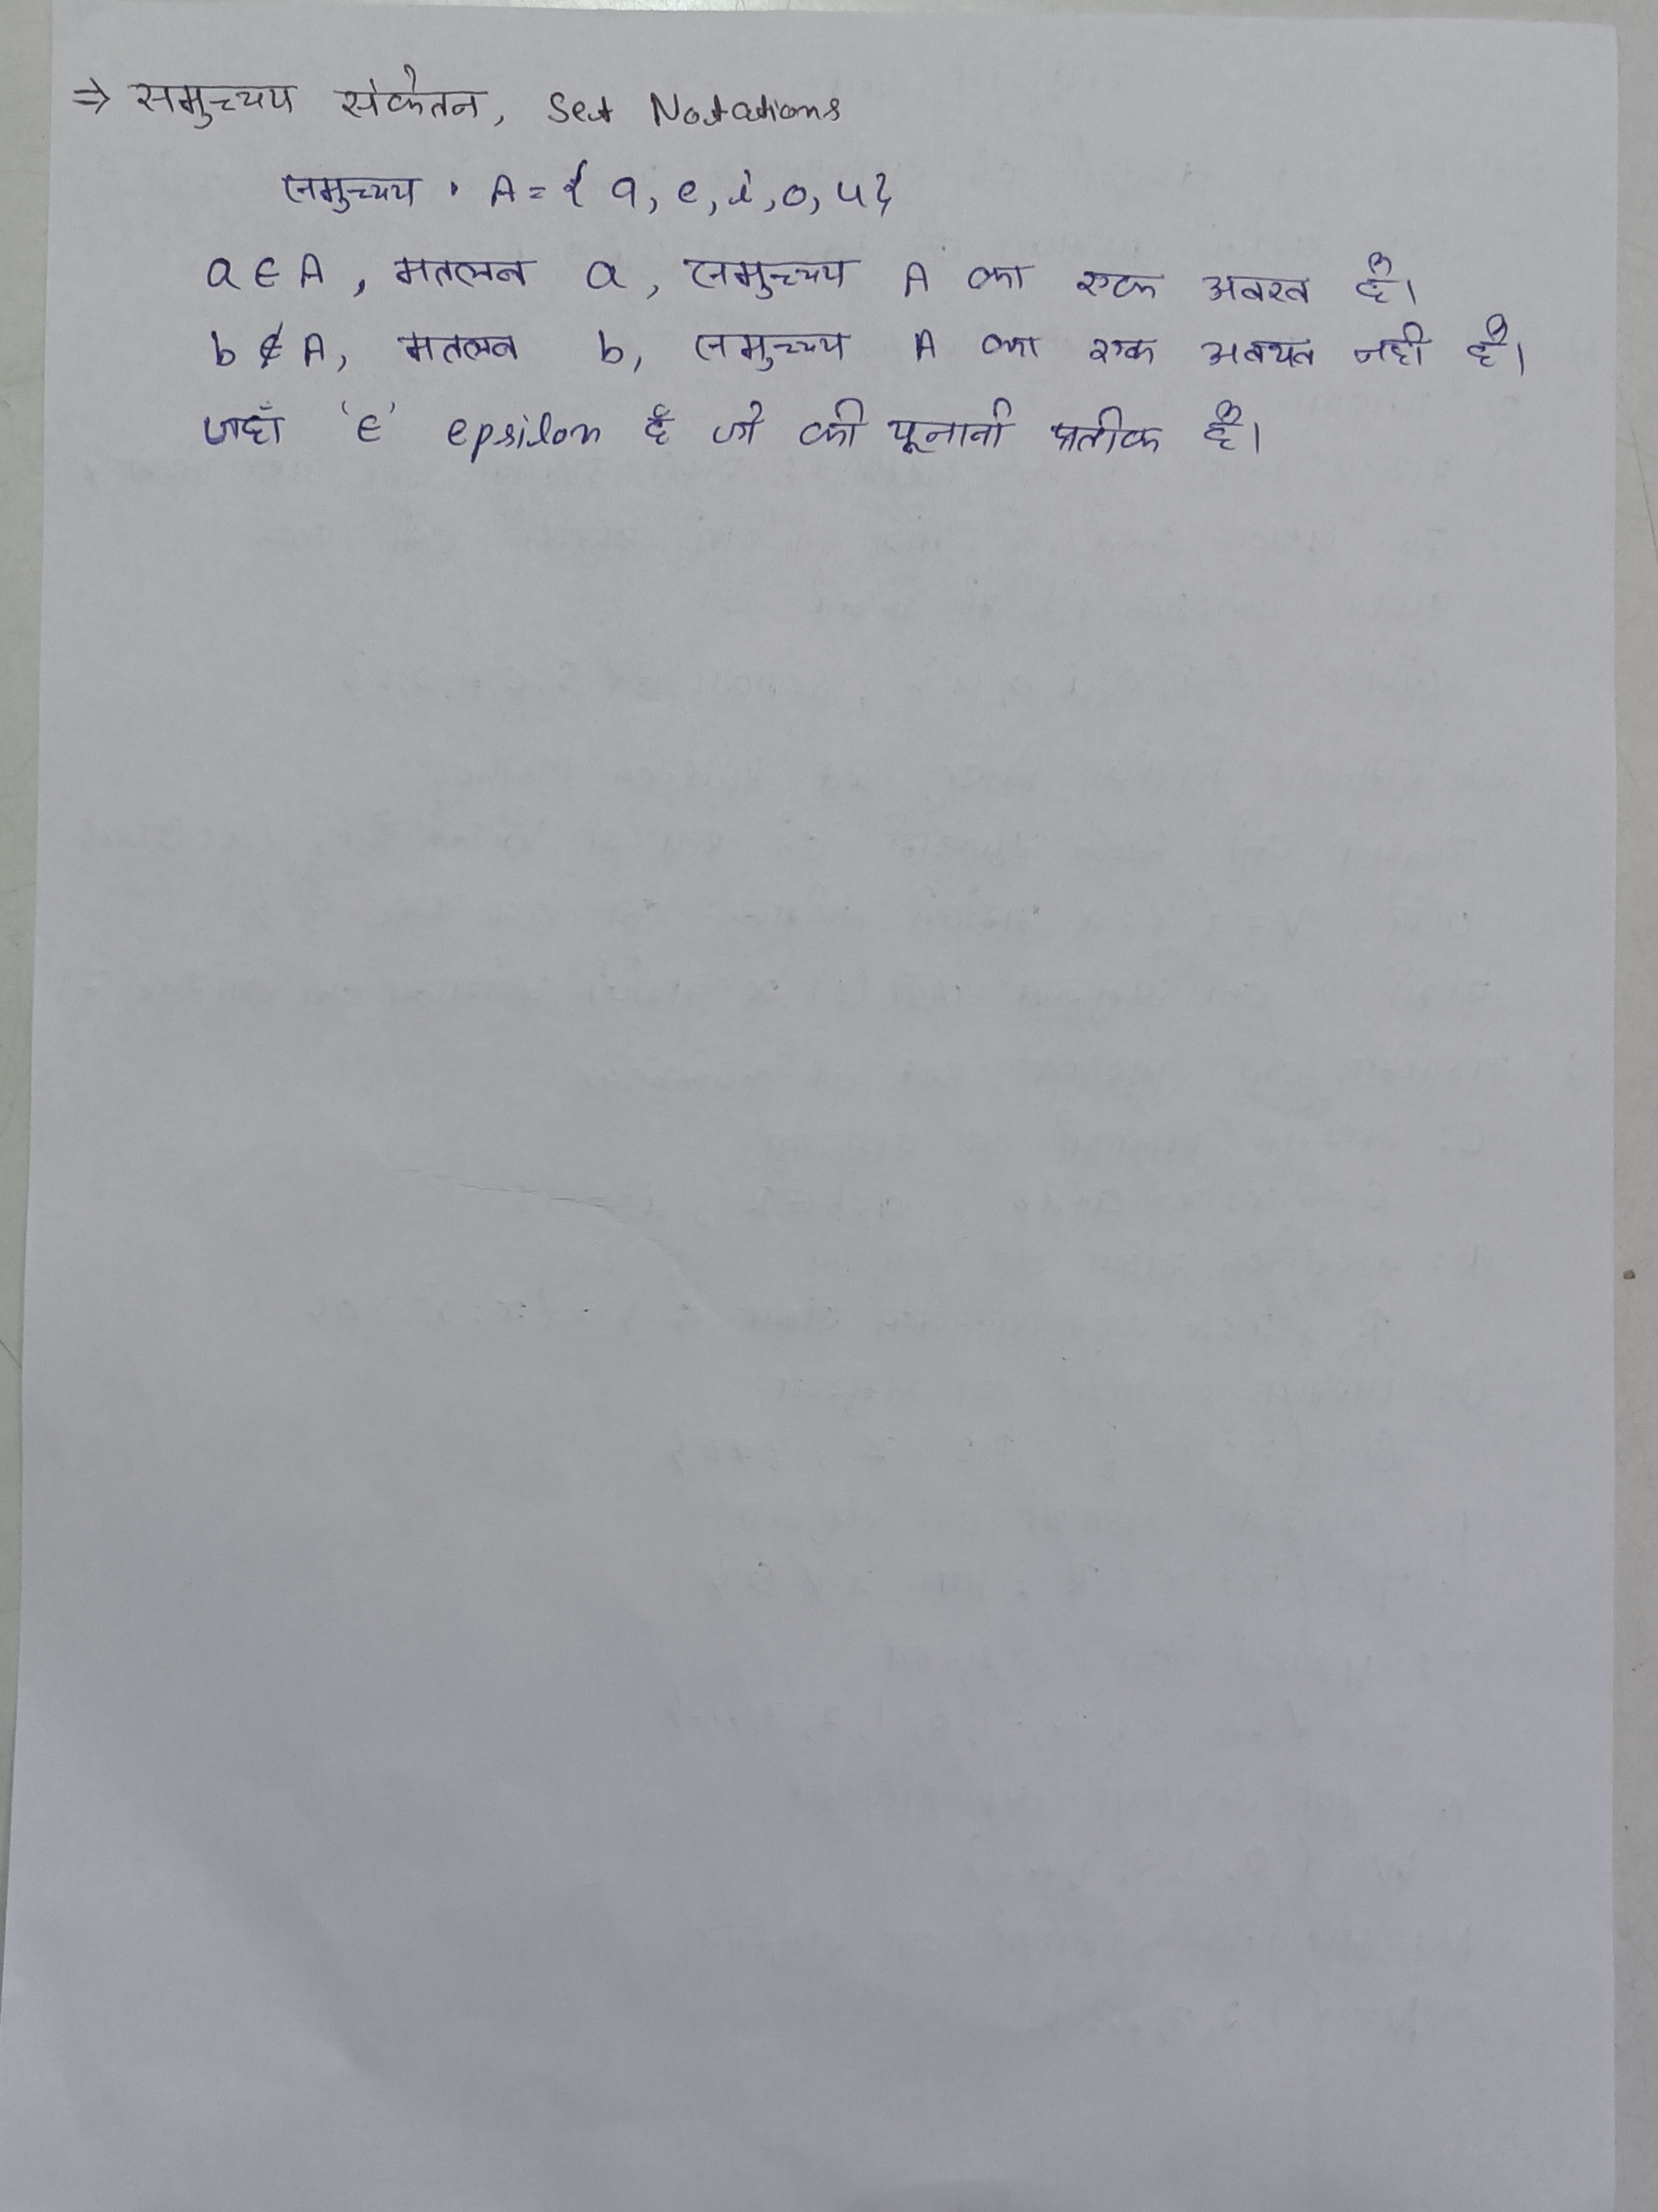 ⇒ समुच्चय संकेतन, Set Notations
समुच्चय · A = { a, e, i, o, u }
a ∈ A , मतलब a , समुच्चय A का एक अवयव है।
b ∉ A, मतलब b, समुच्चय A का एक अवयव नही है।
जहाँ '∈' epsilon है जो की यूनानी प्रतीक है।